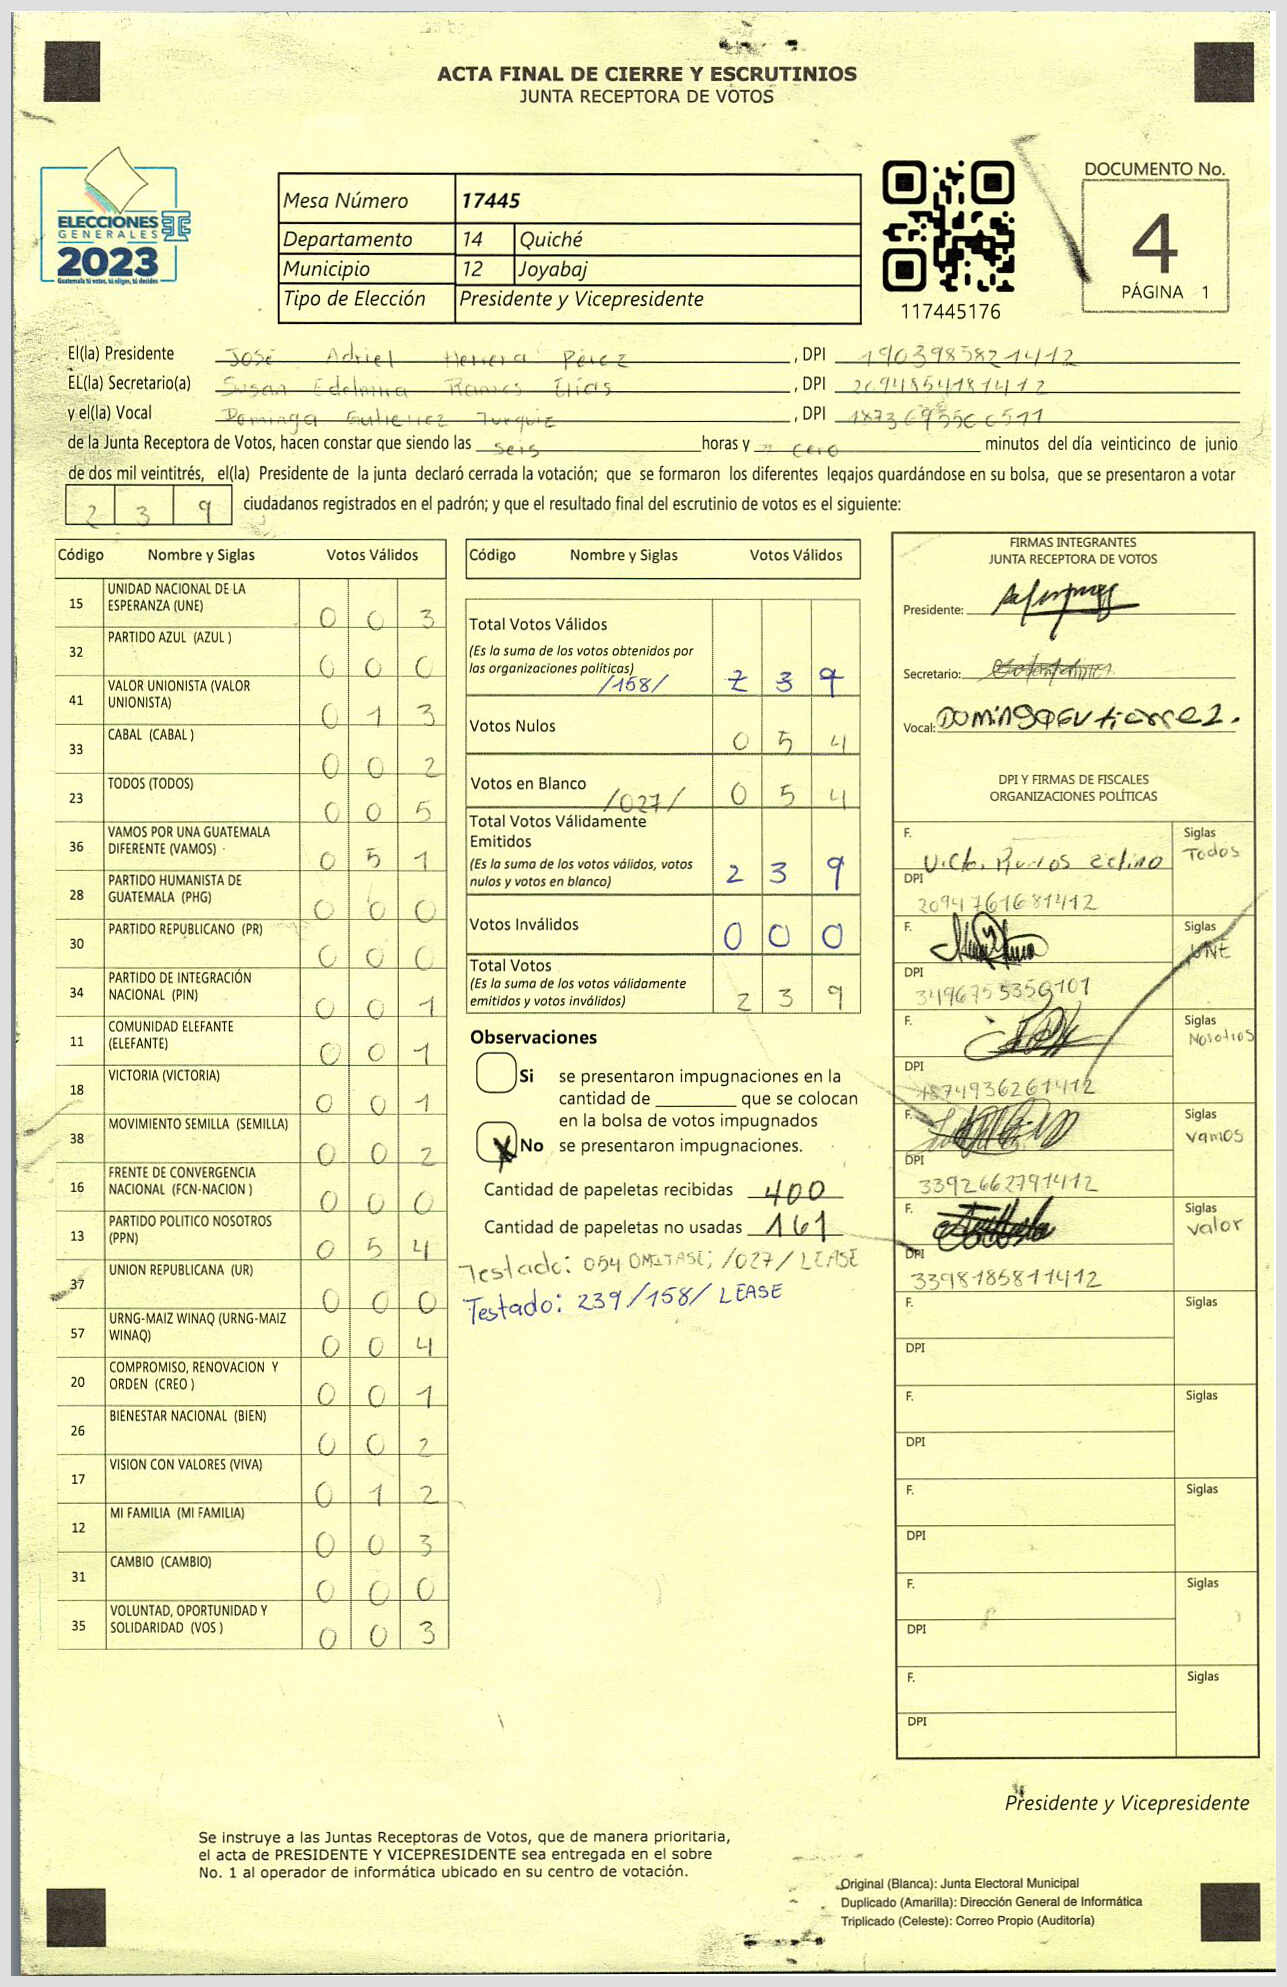 ACTA FINAL DE CIERRE Y ESCRUTINIOS
JUNTA RECEPTORA DE VOTOS
ELECCIONES
GENERALES
2023
Guatemala tú votas, tú eliges, tú decides
Mesa Número 17445
Departamento 14 Quiché
Municipio 12 Joyabaj
Tipo de Elección Presidente y Vicepresidente
117445176
DOCUMENTO No.
4
PÁGINA 1
El(la) Presidente José Adriel Herrera Pérez, DPI 1903985821412
EL(la) Secretario(a) Susan Edelmira Ramos Elías, DPI 2094854181412
y el(la) Vocal Dominga Gutierrez Turquiz, DPI
de la Junta Receptora de Votos, hacen constar que siendo las seis horas y cero minutos del día veinticinco de junio
de dos mil veintitrés, el(la) Presidente de la junta declaró cerrada la votación; que se formaron los diferentes legajos guardándose en su bolsa, que se presentaron a votar
2 3 9 ciudadanos registrados en el padrón; y que el resultado final del escrutinio de votos es el siguiente:
Código Nombre y Siglas Votos Válidos
15 UNIDAD NACIONAL DE LA ESPERANZA (UNE) 0 0 3
32 PARTIDO AZUL (AZUL ) 0 0 0
41 VALOR UNIONISTA (VALOR UNIONISTA) 0 1 3
33 CABAL (CABAL ) 0 0 2
23 TODOS (TODOS) 0 0 5
36 VAMOS POR UNA GUATEMALA DIFERENTE (VAMOS) 0 5 1
28 PARTIDO HUMANISTA DE GUATEMALA (PHG) 0 0 0
30 PARTIDO REPUBLICANO (PR) 0 0 0
34 PARTIDO DE INTEGRACIÓN NACIONAL (PIN) 0 0 1
11 COMUNIDAD ELEFANTE (ELEFANTE) 0 0 1
18 VICTORIA (VICTORIA) 0 0 1
38 MOVIMIENTO SEMILLA (SEMILLA) 0 0 2
16 FRENTE DE CONVERGENCIA NACIONAL (FCN-NACION ) 0 0 0
13 PARTIDO POLITICO NOSOTROS (PPN) 0 5 4
37 UNION REPUBLICANA (UR) 0 0 0
57 URNG-MAIZ WINAQ (URNG-MAIZ WINAQ) 0 0 4
20 COMPROMISO, RENOVACION Y ORDEN (CREO ) 0 0 1
26 BIENESTAR NACIONAL (BIEN) 0 0 2
17 VISION CON VALORES (VIVA) 0 1 2
12 MI FAMILIA (MI FAMILIA) 0 0 3
31 CAMBIO (CAMBIO) 0 0 0
35 VOLUNTAD, OPORTUNIDAD Y SOLIDARIDAD (VOS ) 0 0 3
Código Nombre y Siglas Votos Válidos
Total Votos Válidos
(Es la suma de los votos obtenidos por
las organizaciones políticas)
/158/ 2 3 9
Votos Nulos 0 5 4
Votos en Blanco /027/ 0 5 4
Total Votos Válidamente
Emitidos
(Es la suma de los votos válidos, votos
nulos y votos en blanco) 2 3 9
Votos Inválidos 0 0 0
Total Votos
(Es la suma de los votos válidamente
emitidos y votos inválidos) 2 3 9
Observaciones
Si se presentaron impugnaciones en la
cantidad de ________ que se colocan
en la bolsa de votos impugnados
X No se presentaron impugnaciones.
Cantidad de papeletas recibidas 400
Cantidad de papeletas no usadas 161
Testado: 054 OMITASE; /027/ LEASE
Testado: 239/158/ LEASE
FIRMAS INTEGRANTES
JUNTA RECEPTORA DE VOTOS
Presidente:
Secretario:
Vocal: Dominga Gutierrez.
DPI Y FIRMAS DE FISCALES
ORGANIZACIONES POLÍTICAS
F. Siglas Todos
DPI 2094761681412
F. Siglas UNE
DPI 3496755350101
F. Siglas Nosotros
DPI 1874936261412
F. Siglas Vamos
DPI 3392662791412
F. Siglas Valor
DPI 3398185811412
F. Siglas
DPI
F. Siglas
DPI
F. Siglas
DPI
F. Siglas
DPI
F. Siglas
DPI
Presidente y Vicepresidente
Se instruye a las Juntas Receptoras de Votos, que de manera prioritaria,
el acta de PRESIDENTE Y VICEPRESIDENTE sea entregada en el sobre
No. 1 al operador de informática ubicado en su centro de votación.
Original (Blanca): Junta Electoral Municipal
Duplicado (Amarilla): Dirección General de Informática
Triplicado (Celeste): Correo Propio (Auditoría)